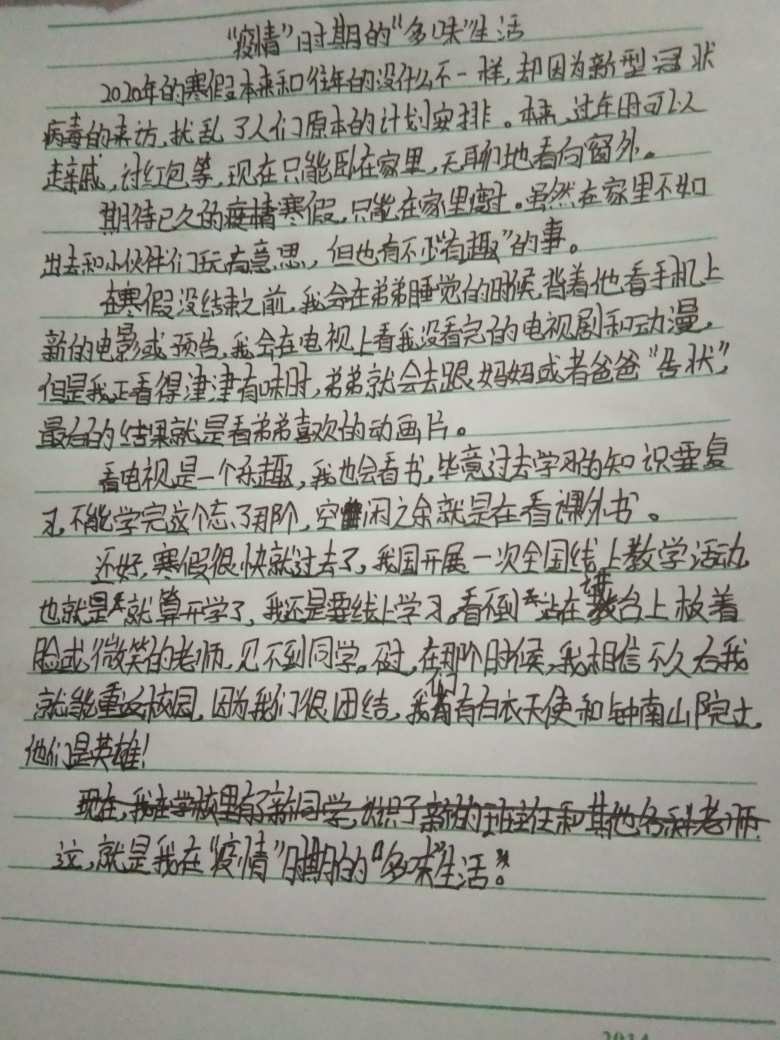 “疫情”时期的“多味”生活
2020年的寒假本来和往年的没什么不一样,却因为新型冠状
病毒的来访,扰乱了人们原本的计划安排。本来,过年时可以
走亲戚,讨红包等,现在只能卧在家里,无聊地看向窗外。
期待已久的疫情寒假,只能在家里度过。虽然在家里不如
出去和小伙伴们玩有意思,但也有不少“有趣”的事。
在寒假没结束之前,我会在弟弟睡觉的时候,背着他看手机上
新的电影或预告,我会在电视上看我没看完的电视剧和动漫,
但是我正看得津津有味时,弟弟就会去跟妈妈或者爸爸“告状”,
最后的结果就是看弟弟喜欢的动画片。
看电视是一个乐趣,我也会看书,毕竟过去学习的知识要复
习,不能学完这个忘了那个,空闲之余就是在看课外书。
还好,寒假很快就过去了,我国开展一次全国线上教学活动
也就是就算开学了,我还是要线上学习。看不到站在讲台上板着
脸或微笑的老师,见不到同学。不过,在那个时候,我相信不久后我
就能重返校园,因为我们很团结,我们有白衣天使和钟南山院士,
他们是英雄!
现在,我在学校里有了新同学,认识了新的班主任和其他各科老师.
这,就是我在“疫情”时期的“多味”生活。